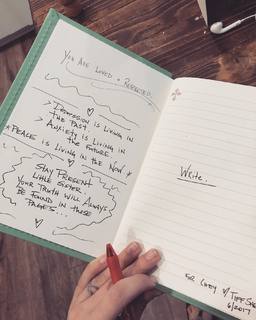 You Are Loved + Respected.
> Depression is Living in
the Past.
> Anxiety is Living in
the Future.
* Peace is Living in the Now *
Stay Present
Little Sister.
Your Truth Will Always
Be Found in These
Pages...
Write.
For Cindy
6/2017